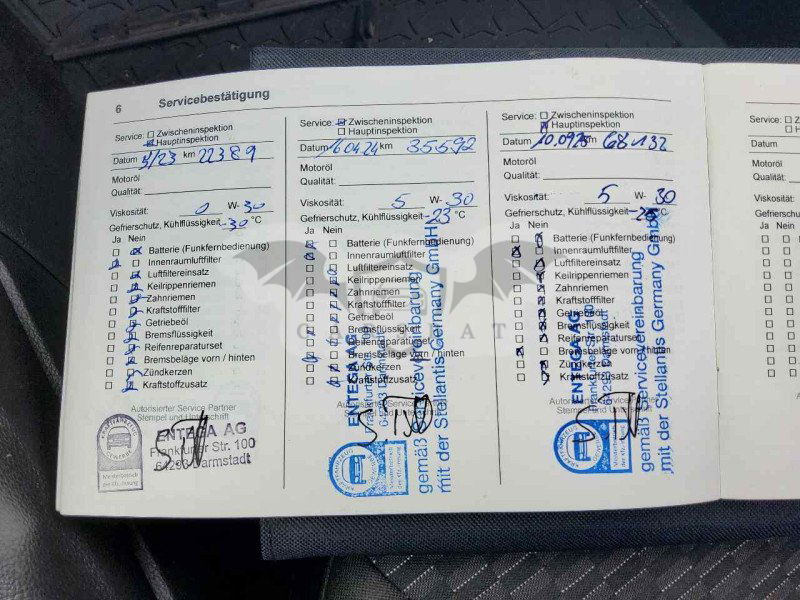 6 Servicebestätigung
Service: Zwischeninspektion
Hauptinspektion
Datum 5/23 km 22389
Motoröl
Qualität:
Viskosität: 0 W-30
Gefrierschutz, Kühlflüssigkeit -30 °C
Ja Nein
Batterie (Funkfernbedienung)
Innenraumluftfilter
Luftfiltereinsatz
Keilrippenriemen
Zahnriemen
Kraftstofffilter
Getriebeöl
Bremsflüssigkeit
Reifenreparaturset
Bremsbeläge vorn / hinten
Zündkerzen
Kraftstoffzusatz
Autorisierter Service Partner
Stempel und Unterschrift
ENTEGA AG
Frankfurter Str. 100
64293 Darmstadt
Service: Zwischeninspektion
Hauptinspektion
Datum 16.04.24 km 35592
Motoröl
Qualität:
Viskosität: 5 W-30
Gefrierschutz, Kühlflüssigkeit -23 °C
Ja Nein
Batterie (Funkfernbedienung)
Innenraumluftfilter
Luftfiltereinsatz
Keilrippenriemen
Zahnriemen
Kraftstofffilter
Getriebeöl
Bremsflüssigkeit
Reifenreparaturset
Bremsbeläge vorn / hinten
Zündkerzen
Kraftstoffzusatz
Autorisierter Service
Stempel und
ENTEGA AG
gemäß Servicevereinbarung
mit der Stellantis Germany GmbH
Service: Zwischeninspektion
Hauptinspektion
Datum 10.09.25 km 68132
Motoröl
Qualität:
Viskosität: 5 W- 30
Gefrierschutz, Kühlflüssigkeit °C
Ja Nein
Batterie (Funkfernbedienung)
Innenraumluftfilter
Luftfiltereinsatz
Keilrippenriemen
Zahnriemen
Kraftstofffilter
Getriebeöl
Bremsflüssigkeit
Reifenreparaturset
Bremsbeläge vorn / hinten
Zündkerzen
Kraftstoffzusatz
Autorisierter Service
Stempel und
ENTEGA AG
gemäß Servicevereinbarung
mit der Stellantis Germany GmbH
Service:
Datum
Motoröl
Qualität:
Viskosität:
Gefrierschutz
Ja Nein